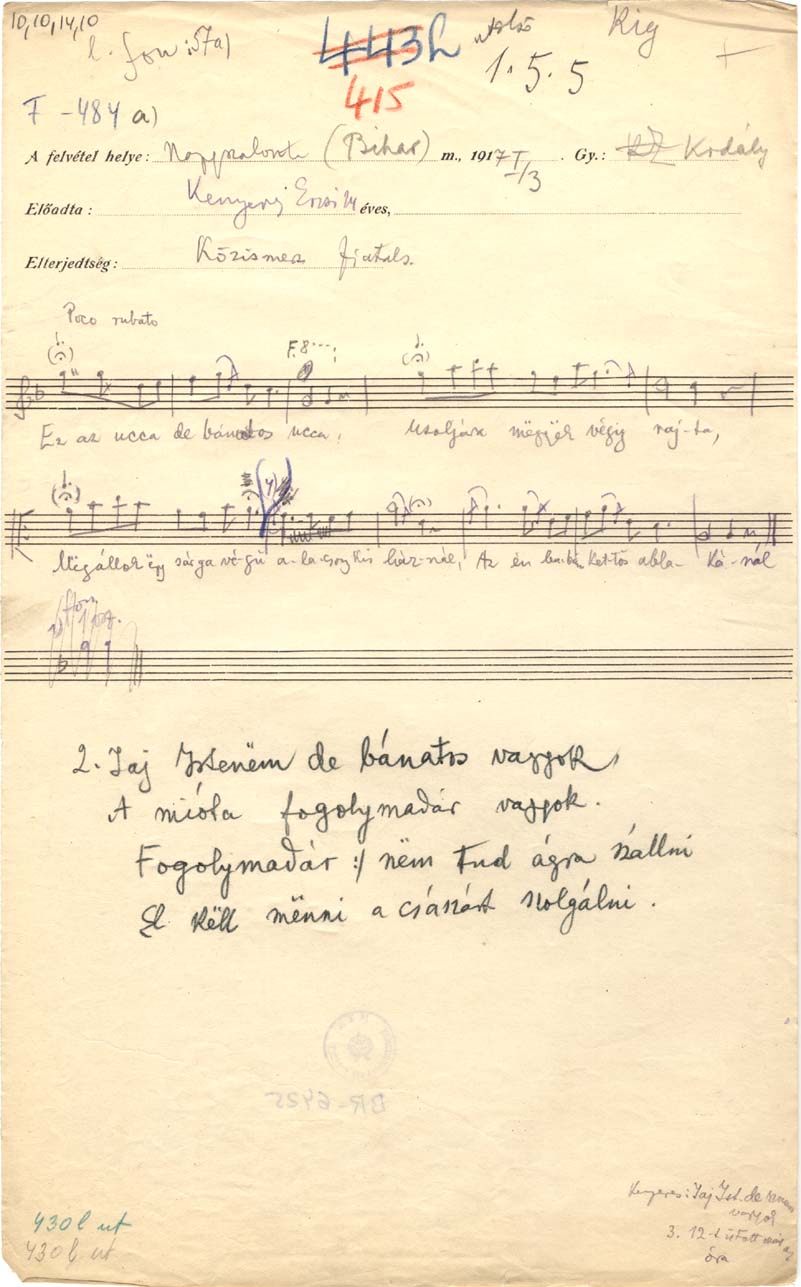 10, 10, 14, 10
l. fon: 57a)
443h
415
utolsó
1. 5. 5
Rig
+
F -484 a)
A felvétel helye: Nagyszalonta (Bihar) m., 1917 I/3. Gy.: KZ Kodály
Előadta: Kenyeres Erzsi 14 éves,
Elterjedtség: Közismer fiatals.
Poco rubato
Ez az ucca de bánatos ucca,
mëgyëk végig raj-ta,
Mëgállok ëgy sárga vé-gü a-la-csony kis ház-nál, Az én ba-bám ket-tős abla- ká-nál
fon.
2. Jaj Istenëm de bánatos vagyok,
A mióta fogolymadár vagyok.
Fogolymadár :/ nëm tud ágra szállni
El këll mënni a császárt szolgálni.
BR-6425
430 l ut
430 l ut
Kenyeres: Jaj Ist. de
vagyok
3. 12-t ütött már az
óra